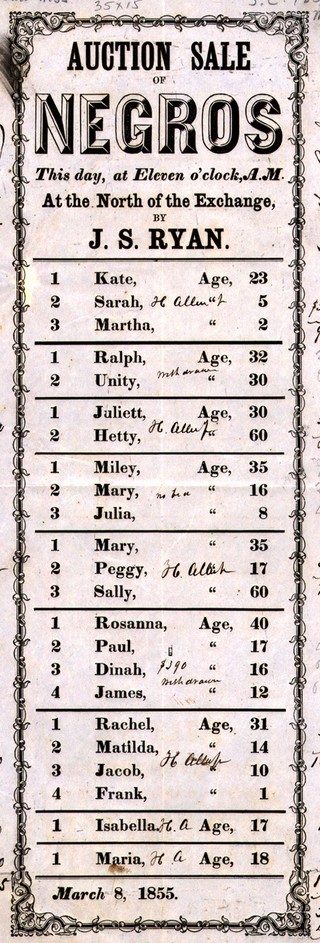 35x15
AUCTION SALE
OF
NEGROS
This day, at Eleven o'clock, A.M.
At the North of the Exchange,
BY
J. S. RYAN.
1 Kate, Age, 23
2 Sarah, H " 5
3 Martha, " 2
1 Ralph, Age, 32
withdrawn
2 Unity, " 30
1 Juliett, Age, 30
2 Hetty, H. " 60
1 Miley, Age, 35
2 Mary, no " 16
3 Julia, " 8
1 Mary, " 35
2 Peggy, H 17
3 Sally, " 60
1 Rosanna, Age, 40
2 Paul, " 17
3 Dinah, $390 " 16
withdrawn
4 James, " 12
1 Rachel, Age, 31
2 Matilda, " 14
3 Jacob, H " 10
4 Frank, " 1
1 Isabella H. A Age, 17
1 Maria, H A Age, 18
March 8, 1855.